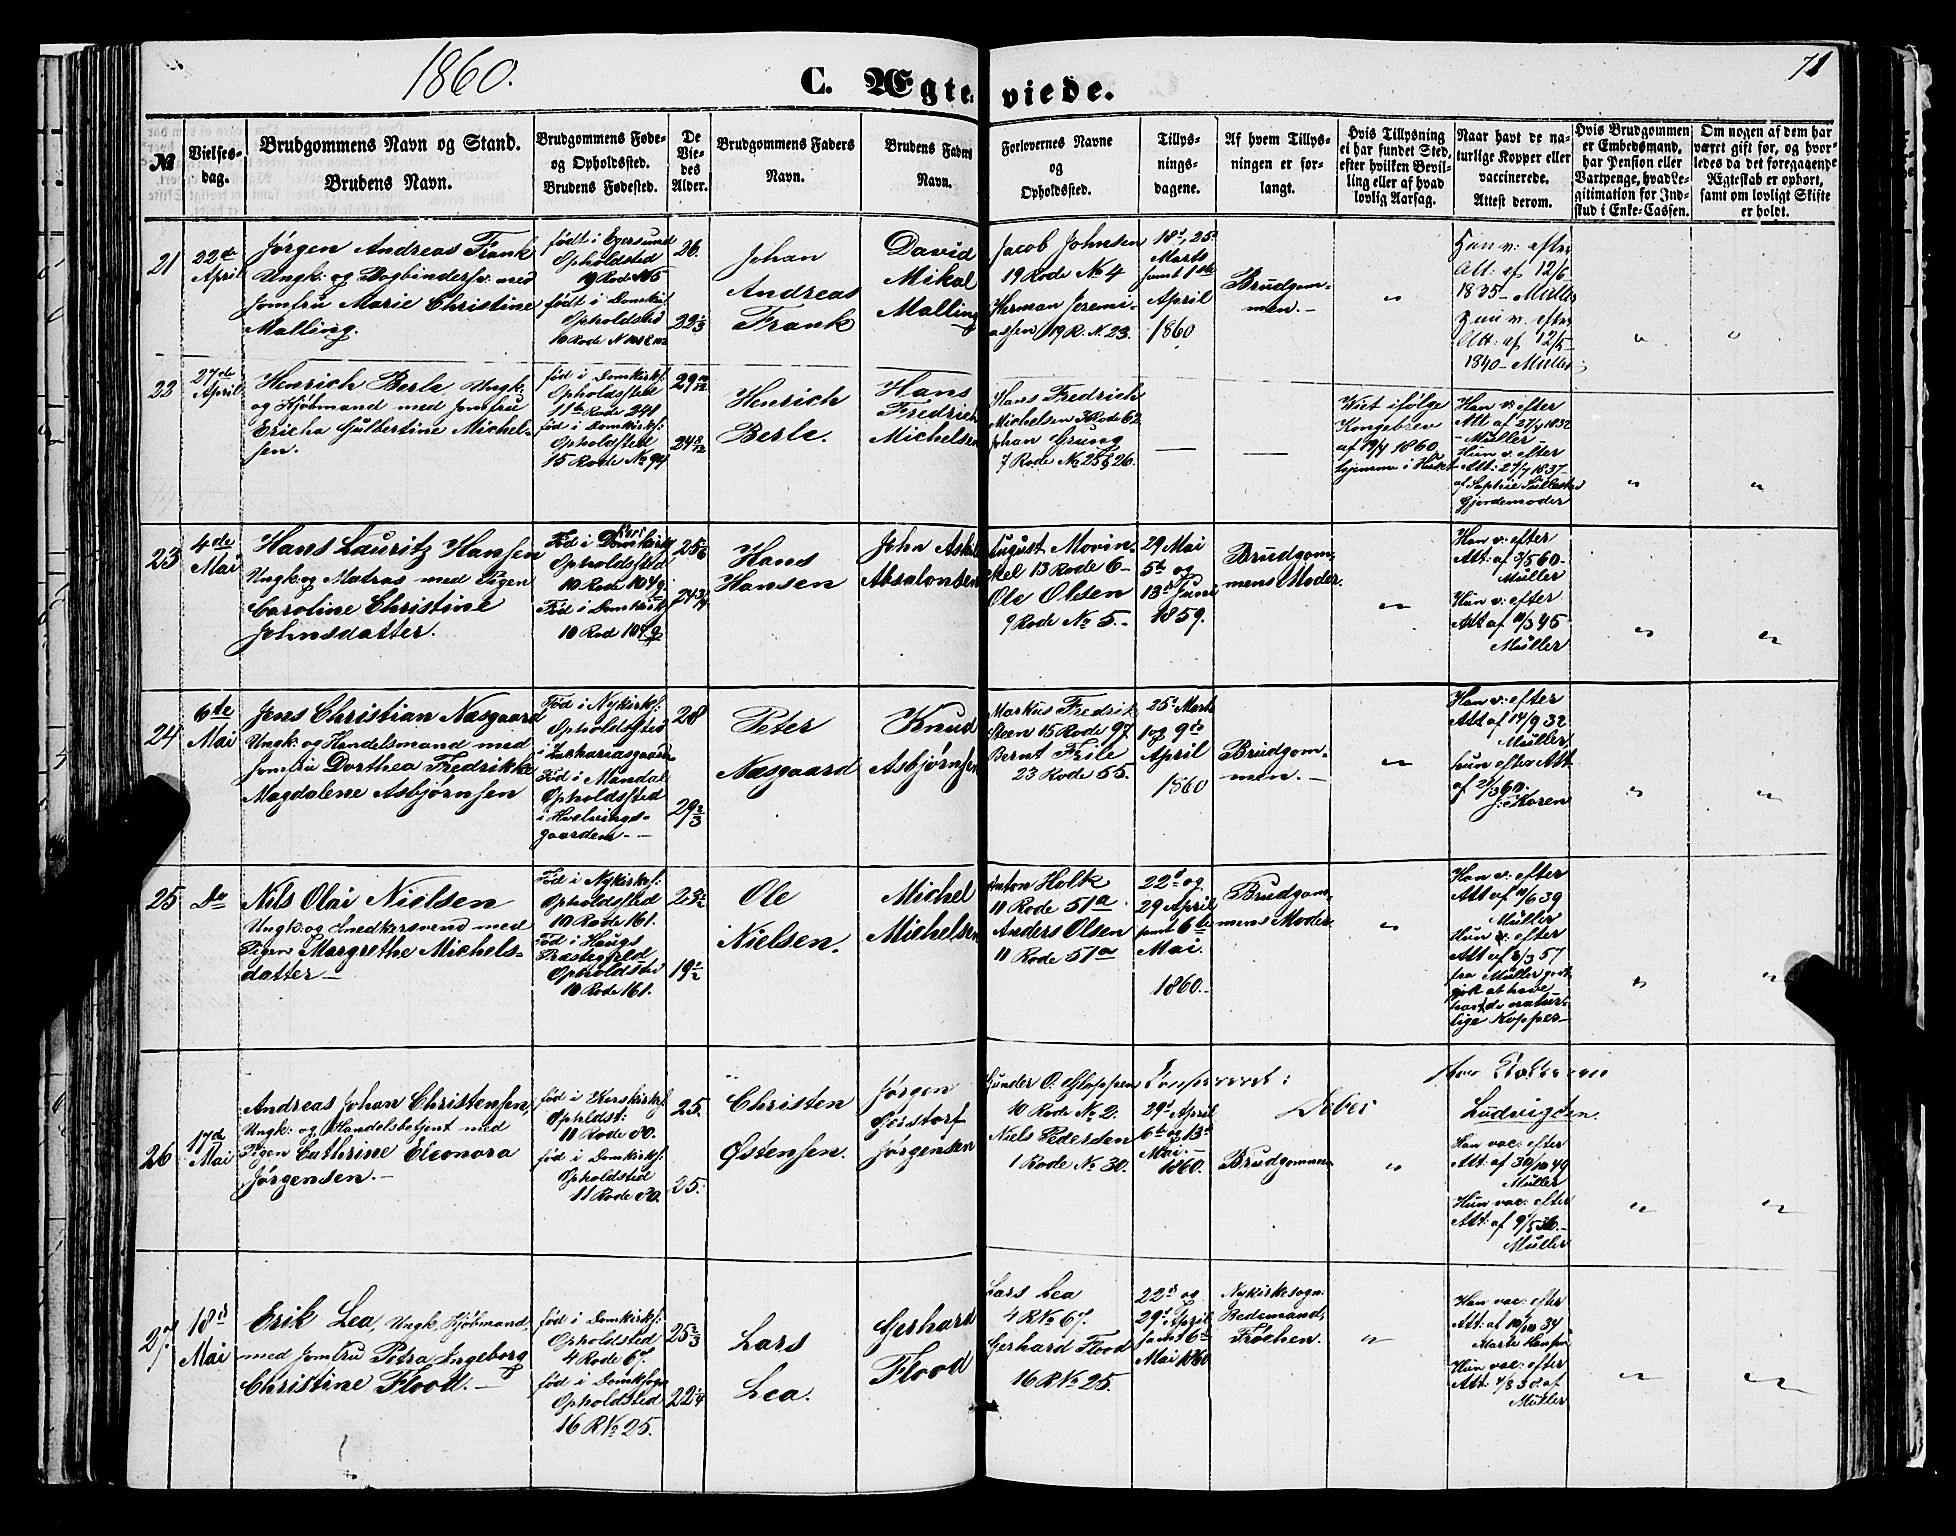 1860.
C. Ægteviede.
71
№
Vielses-
dag.
Brudgommens Navn og Stand.
Brudens Navn.
Brudgommens Føde-
og Opholdssted.
Brudens Fødested.
De
Vie-
des
Alder.
Brudgommens Faders
Navn.
Brudens Faders
Navn.
Forlovernes Navne
og
Opholdssted.
Tillys-
nings-
dagene.
Af hvem Tillys-
ningen er for-
langt.
Hvis Tillysning
ei har fundet Sted,
efter hvilken Bevil-
ling eller af hvad
lovlig Aarsag.
Naar havt de na-
turlige Kopper eller
vaccinerede.
Attest derom.
Hvis Brudgommen
er Embedsmand,
har Pension eller
Vartpenge, hvad Le-
gitimation for Ind-
skud i Enke-Cassen.
Om nogen af dem har
været gift før, og hvor-
ledes da det foregaaende
Ægteskab er ophørt,
samt om lovligt Skifte
er holdt.
21
22de
April
Jørgen Andreas Frank
Ungk: og Bogbindersv: med
Jomfru Marie Christine
Malling.
født i Egersund
Opholdsted
født i Domkirk:
Opholdsted
26.
22 1/3
Johan
Andreas
Frank
David
Mikal
Malling
Jacob Johnsen
19 Rode № 4
Herman Jeremi-
assen 19 R. N 23.
18d, 25d
Marts
samt 1ste
April
1860
Brudgom-
men.-
"
Han v: efter
Att: af 12/6
1835 - Müller
Hun v. efter
Att: af 12/5
1840 - Müller
"
"
22
27de
April
Henrich Berle Ungk:
og Kjøbmand med Jomfru
Ericha Gulbertine Michel-
sen.
fød i Domkirk:
Opholdsted
11te Rode 241
fød i Domkirk:
Opholdssted
15 Rode № 94
29
24 8/12
Henrich
Berle.
Hans
Fredrich
Michelsen
Hans Fredrich
Michelsen Rode 62
Johan Grung
7 Rode № 25 & 26.
—
—
Viet ifølge
Kongebrev
af 19/4 1860
hjemme i Huset
Han v: efter
Att af 27/4 1832
- Müller -
Hun v: efter
Att: 27/7 1837
Gjordemoder
"
"
23
4de
Mai
Hans Lauritz Hansen
Ungk: og Matros med Pigen
Caroline Christine
Johnsdatter.
Fød i Korskirk
Opholdsted
10 Rode 104 g
Fød i Domkirk
10 Rod 104 g
25
24 3/4
Hans
Hansen
John Askel
Absalonsen
August Movin-
ckel 13 Rode 6 -
Ole Olsen
9 Rode № 5.-
29 Mai
5te og
13d Juni
1859.
Brudgom-
mens Moder.
"
Han v: efter
Att: af 3/5 60-
Müller
Hun v: efter
Att af 45
Müller
"
"
24
6te
Mai
Jens Christian Næsgaard
Ungk: og Handelsmand med
Jomfru Dorthea Fredrikke
Magdalene Asbjørnsen
Fød i Nykirk:
Opholdsted
i Zachariasgaarden
Fød i Mandal
Opholdsted
i Hvelvings-
gaarden.-
28
29 2/3
Peter
Næsgaard
Knud
Asbjørnsen
Markus Fredrik
Steen 15 Rode 97.
Bernt Friele
23 Rode 55.
25d Marts
1 og 9de
April
1860
Brudgom-
men.-
"
Han v: efter
Att af 14/9 32.
Müller
hun efter Att
af 21/3 60.
J: Koren
"
"
25
Do
Nils Olai Nielsen
Ungk: og Snedkersvend med
Pigen Margrethe Michels-
datter-
Fød i Nykirk:
Opholdsted
10 Rode 161.
Fød i Haugs
Præstegjeld
Opholdsted
10 Rode 161.
23 1/2
19 1/2
Ole
Nielsen.
Michel
Michelsen
Anton Holk
11 Rode 51a
Anders Olsen
11 Rode 51a
22d og
29 April
samt 6te
Mai.
1860.-
Brudgom-
mens Moder.
"
Han v: efter
Att af 39
Müller
Hun v: efter
Att af 6/3 57
fra Müller godt-
gjort at have
havt de natur-
lige Kopper-
"
"
26
17de
Mai
Andreas Johan Christensen,
Ungk: og Handelsbetjent med
Pigen Cathrine Eleonora
Jørgensen.-
fød i Korskirk:
Opholdst:
11 Rode 80.
fød i Domkirk:
Opholdsted
11 Rode 80.
25.
25.
Christen
Østensen.
Jørgen
Gerstorf
Jørgensen
Gunder O: Gloppen
10 Rode № 2.
Niels Pedersen
1 Rode № 30.
29d April
6te og 13d
Mai.-
1860.
Brudgommen
"
Ludvigsen.
Han vac: efter
Att: af 30/10 49
Müller
Hun vac: efter
Att: af 9/5 36.-
Müller
"
"
27.
18d
Mai
Erik Lea, Ungk, Kjøbmand,
med Jomfru Petra Ingeborg
Christine Flood.-
fød i Domkirk:
Opholdsted
4 Rode 67.
fød i Domksogn
Opholdsted
16 R № 25.
25 2/3
22 1/4
Lars
Lea.
Gerhard
Flood
Lars Lea
4 R № 67.
Gerhard Flood
16 R № 25.
22d og
29d April
samt 6te
Mai 1860
Nykirkesogn
Bedemand,
Frøchen.
"
Han vac: efter
Att: af 10/10 34
Marte Hansen
Hun vac: efter
Att: 4/8 30. af
Müller
"
"